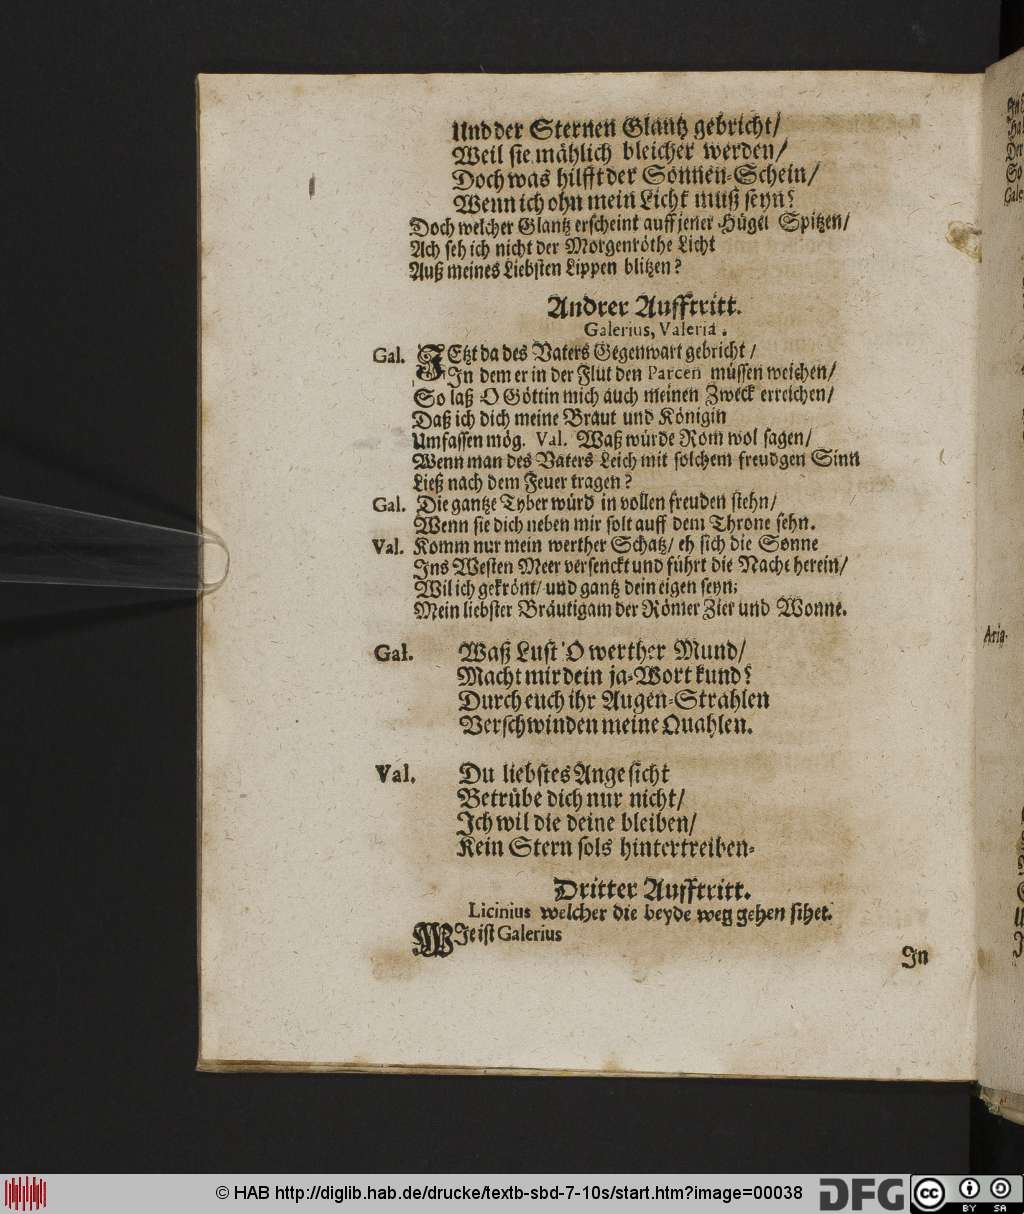 Und der Sternen Glantz gebricht/
Weil sie mählich bleicher werden/
Doch was hilfft der Sonnen-Schein/
Wenn ich ohn mein Licht muß seyn?
Doch welcher Glantz erscheint auff jener Hügel Spitzen/
Ach seh ich nicht der Morgenröthe Licht
Auß meines Liebsten Lippen blitzen?
Andrer Aufftritt.
Galerius, Valeria.
Gal. JEtzt da des Vaters Gegenwart gebricht/
In dem er in der Flut den Parcen müssen weichen/
So laß O Göttin mich auch meinen Zweck erreichen/
Daß ich dich meine Braut und Königin
Umfassen mög. Val. Waß würde Rom wol sagen/
Wenn man des Vaters Leich mit solchem freudgen Sinn
Ließ nach dem Feuer tragen?
Gal. Die gantze Tyber würd in vollen freuden stehn/
Wenn sie dich neben mir solt auff dem Throne sehn.
Val. Komm nur mein werther Schatz/ eh sich die Sonne
Ins Westen Meer versenckt und führt die Nacht herein/
Wil ich gekrönt/ und gantz dein eigen seyn;
Mein liebster Bräutigam der Römer Zier und Wonne.
Gal. Waß Lust O werther Mund/
Macht mir dein ja-Wort kund?
Durch euch ihr Augen-Strahlen
Verschwinden meine Quahlen.
Val. Du liebstes Angesicht
Betrübe dich nur nicht/
Ich wil die deine bleiben/
Kein Stern sols hintertreiben-
Dritter Aufftritt.
Licinius welcher die beyde weg gehen sihet.
WIe ist Galerius
In
Arig.
© HAB http://diglib.hab.de/drucke/textb-sbd-7-10s/start.htm?image=00038
DFG
cc
BY SA